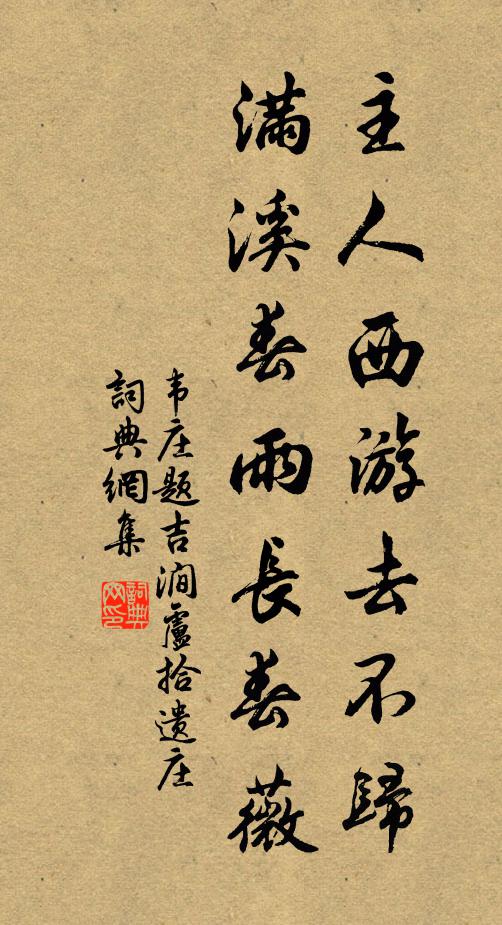 主人西游去不歸
滿溪春雨長春薇
韦庄题吉澗盧拾遗庄
詞典網集
詞典网印